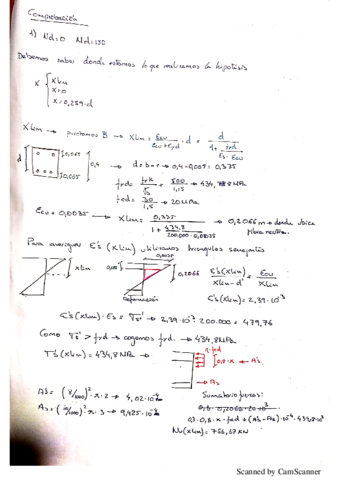 Comprobación
1) Nd=0 Md=150
Debemos saber donde estamos y que realizamos la hipótesis
x { xlim
x=0
x=0,259·d
Xlim → pivotamos B → Xlim = Ecu / (Ecu+Eyd) · d = d / (1+ fyd / (Es·Ecu))
d 0,065 0,4 0,065
→ d=h-r → 0,4-0,065 = 0,335
fyd = fyk / γs = 500 / 1,15 → 434,78 MPa
fcd = 30 / 1,5 → 20 MPa
Ecu = 0,0035 → Xlim = 0,335 / (1 + 434,8 / (200.000 · 0,0035)) → 0,2066 m → donde ubica fibra neutra.
Para averiguar E's (xlim) utilizamos triángulos semejantes
0,0035
xlim 0,065 0,2066
Deformación
E's(xlim) / (xlim - d') = Ecu / Xlim
E's(xlim) = 2,39·10⁻³
E's(xlim) · Es = σs' → 2,39·10⁻³ · 200.000 = 479,76
Como σs' > fyd → cogemos fyd. → 434,8 MPa.
σ's(xlim) = 434,8 MPa →
η·fcd
0,8·x A's
→ As
A's = (8/1000)² · π · 2 → 4,02·10⁻⁴
As = (10/1000)² · π · 3 → 9,425·10⁻⁴
Sumatorio fuerzas:
0,3·0,8·x·fcd + (A's-As)·10⁻⁴·434,8·10³
Nu(xlim) = 756,67 KN
Scanned by CamScanner